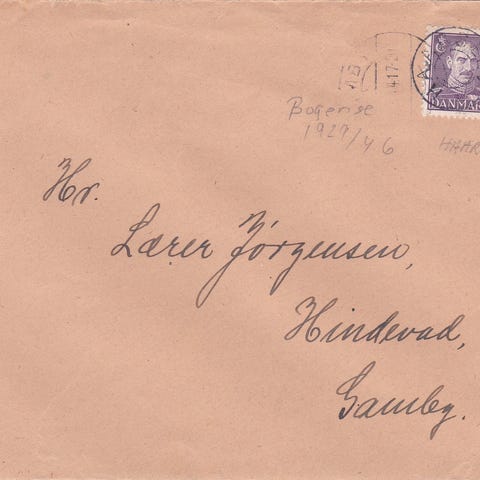 DANMARK
Bogense
1929/46
HAAR
Hr.
Lærer Jørgensen,
Hindevad,
Gamby.